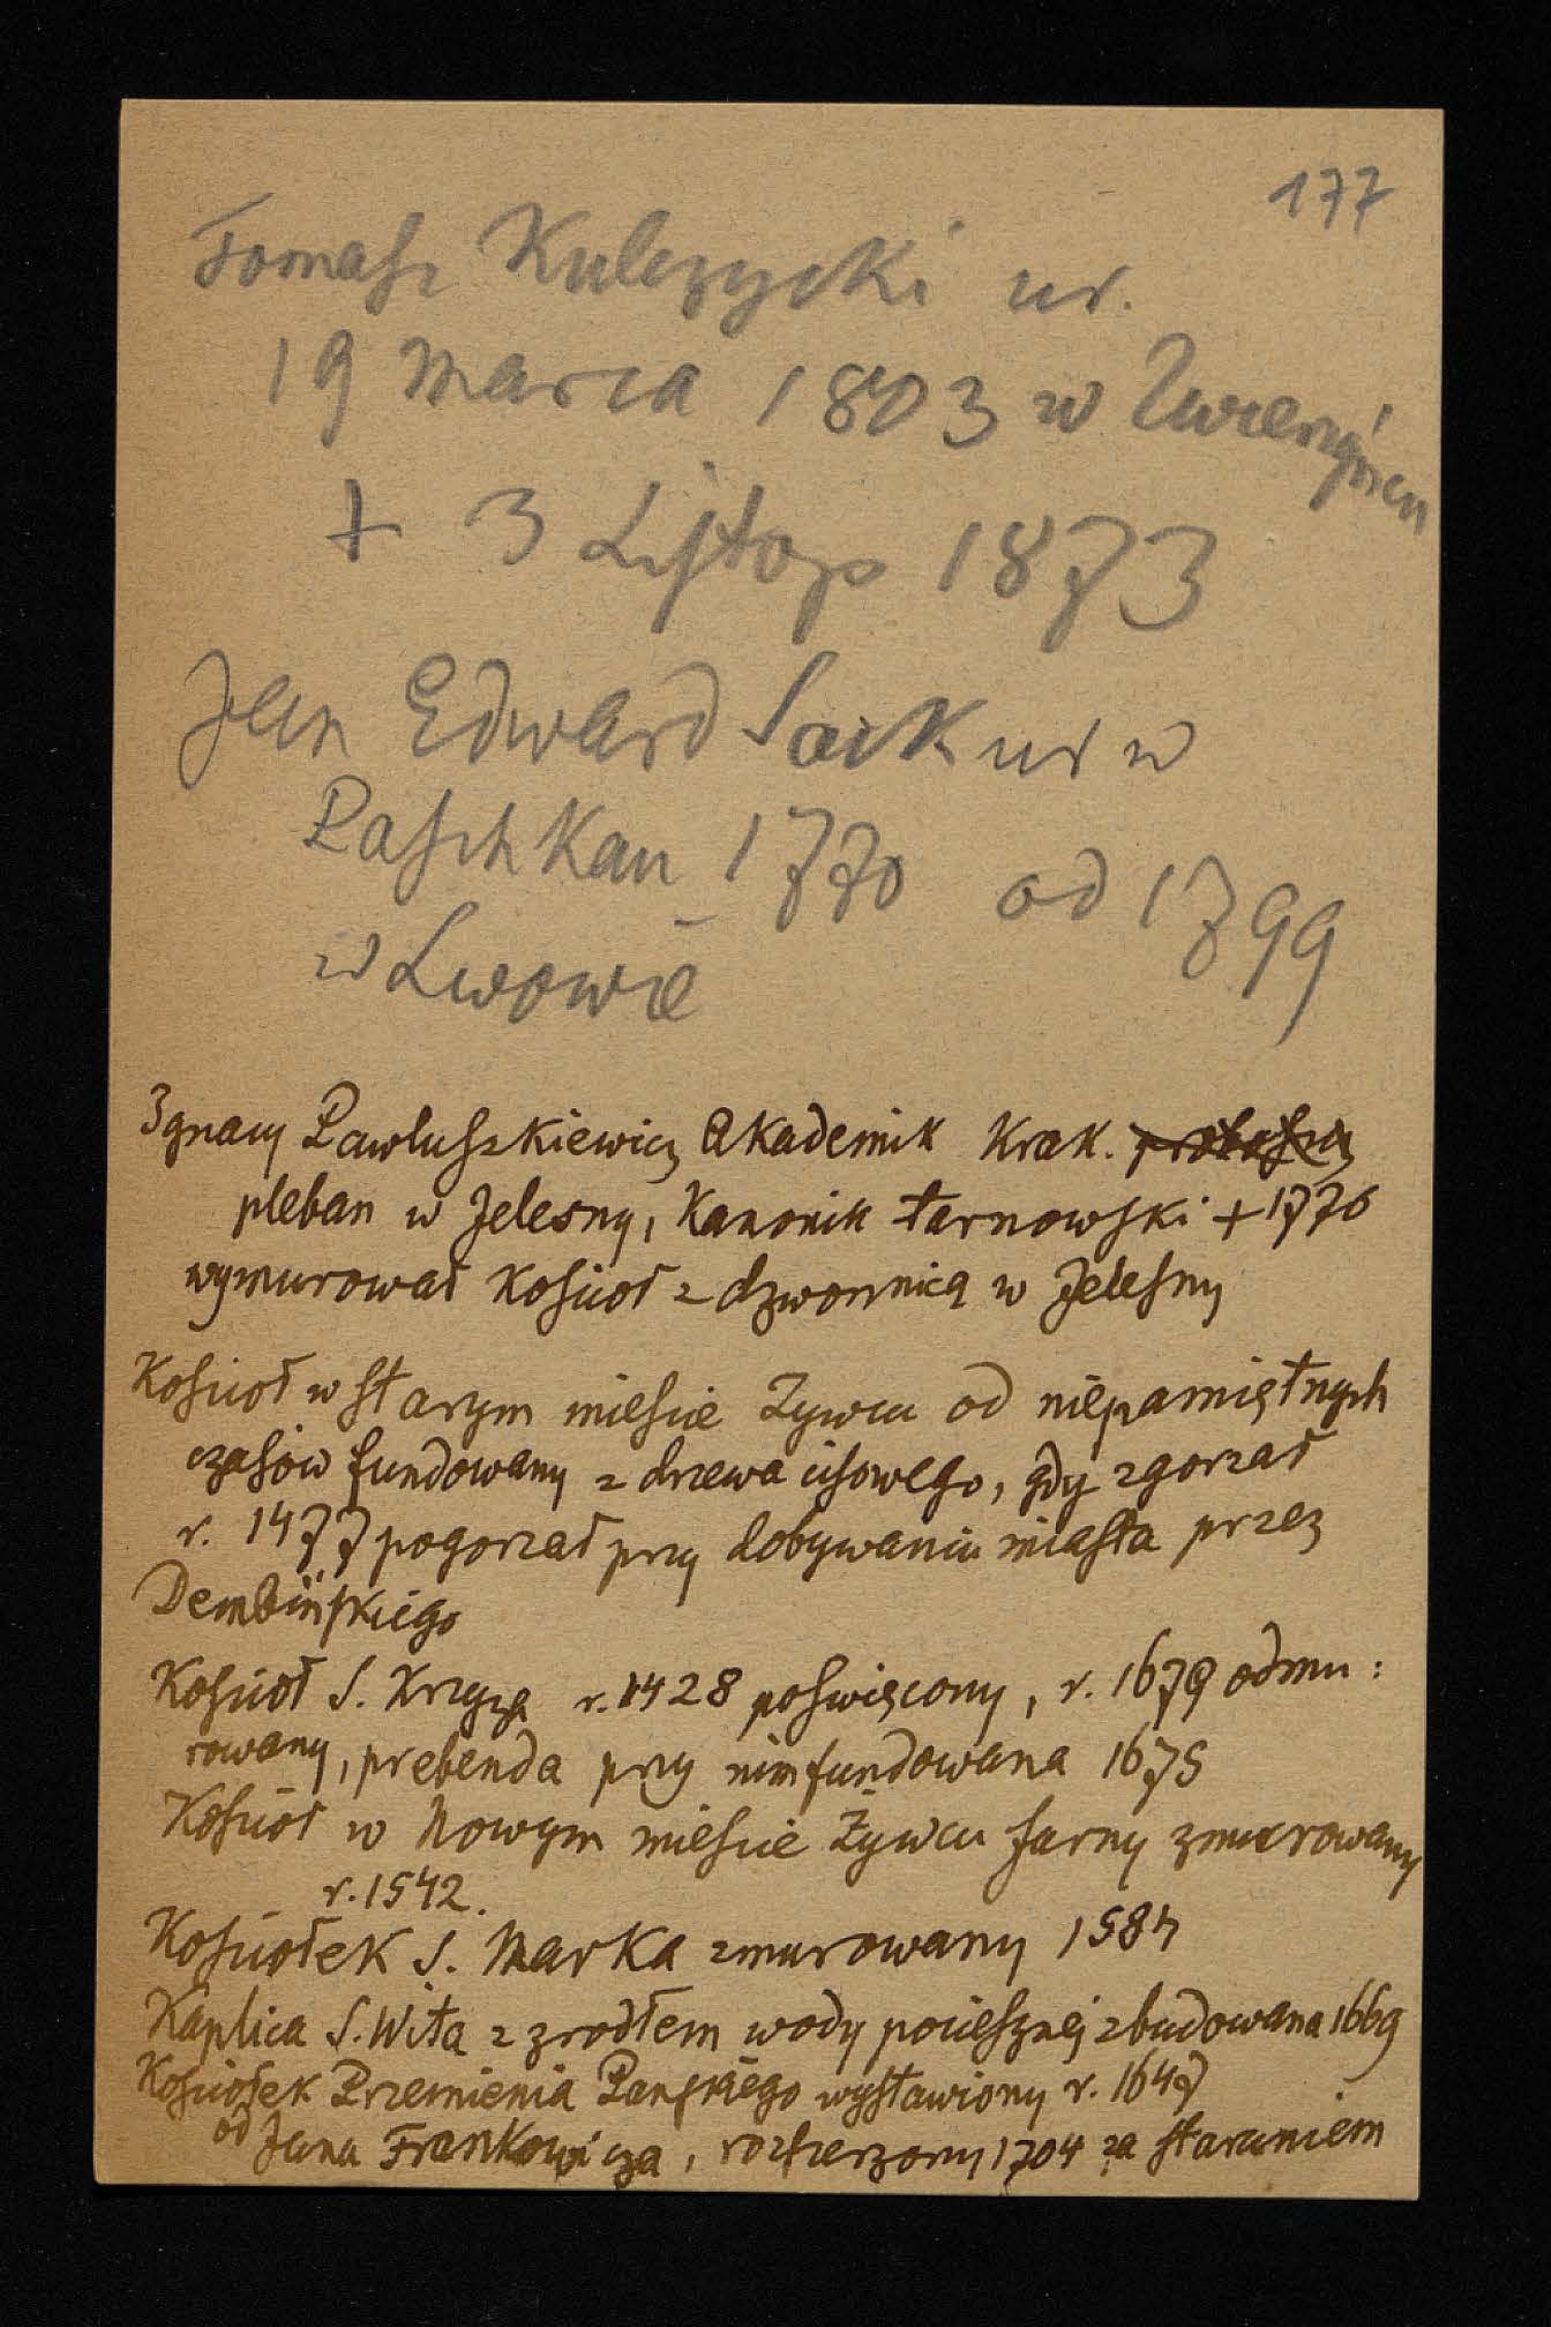 177
Tomasz Kulczycki ur.
19 Marca 1803 w Zwierzyńcu
+ 3 Listop 1873
Jan Edward Sack ur w
Paschkau 1770 od 1799
w Lwowie
Ignacy Pawluszkiewicz Akademik Krak. proboszcz
pleban w Jelesny, Kanonik tarnowski + 1776
wymurował Koscioł z dzwonnicą w Jelesny
Koscioł w starym miescie Zywcu od niepamiętnych
czasów fundowany z drzewa cisowego, gdy zgorzał
r. 1477 pogorzał przy dobywaniu miasta przez
Dembińskiego
Koscioł S. Krzyża r. 1428 poswięcony, r. 1679 odmu:
rowany, prebenda przy nim fundowana 1675
Kosciół w Nowym miescie Żywcu farny zmurowany
r. 1542.
Kosciołek S. Marka zmurowany 1584
Kaplica S. Wita z zrodłem wody pociesznej zbudowana 1669
Kosciołek Przemienia Panskiego wystawiony r. 1647
od Jana Frankowicza, rozszerzony 1704 za staraniem